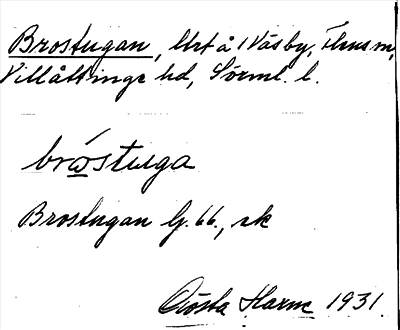 Brostugan, Urt å 1 Väsby, Flens m,
Villåttinge hd, Sörml. l.
bróstuga
Brostugan G. 66, rk
Gösta Harm 1931.